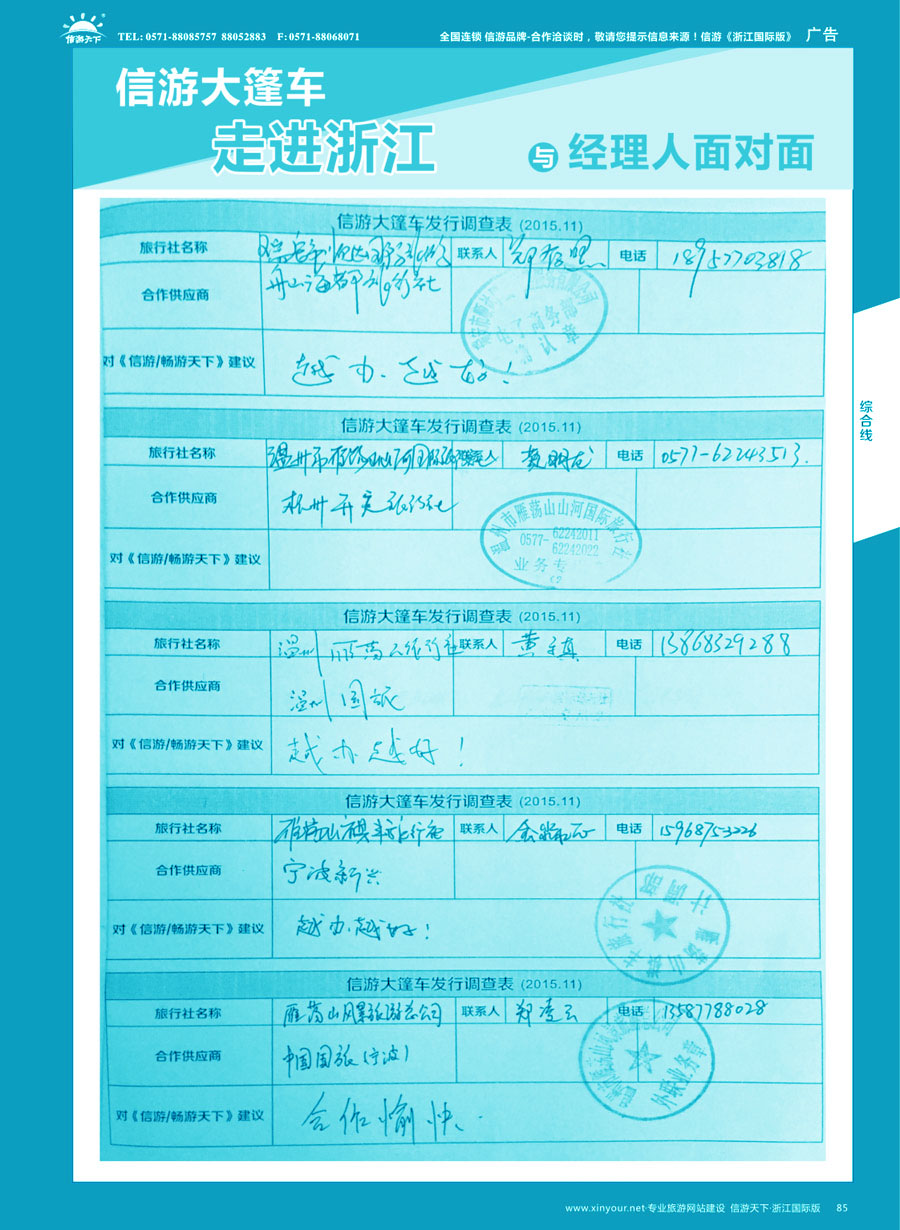 信游天下
TEL: 0571-88085757 88052883 F: 0571-88068071
全国连锁 信游品牌-合作洽谈时，敬请您提示信息来源！信游《浙江国际版》 广告
信游大篷车
走进浙江
与 经理人面对面
综合线
信游大篷车发行调查表 (2015.11)
旅行社名称 联系人 电话 18957703818
合作供应商
对《信游/畅游天下》建议 越办、越好！
信游大篷车发行调查表 (2015.11)
旅行社名称 温州市雁荡山山河国际旅行社 电话 0577-62243513.
合作供应商 杭州
温州市雁荡山山河国际旅行社
0577- 62242011
62242022
业务专
对《信游/畅游天下》建议
信游大篷车发行调查表 (2015.11)
旅行社名称 温州雁荡山旅行社 联系人 黄 电话 13868329288
合作供应商 温州国旅
对《信游/畅游天下》建议 越办越好！
信游大篷车发行调查表 (2015.11)
旅行社名称 联系人 电话 15968753226
合作供应商 宁波新兴
计调部
对《信游/畅游天下》建议 越办、越好！
信游大篷车发行调查表 (2015.11)
旅行社名称 雁荡山风景旅游总公司 联系人 郑凌云 电话 13587788028
合作供应商 中国国旅(宁波)
对《信游/畅游天下》建议 合作愉快、
www.xinyour.net·专业旅游网站建设 信游天下·浙江国际版 85